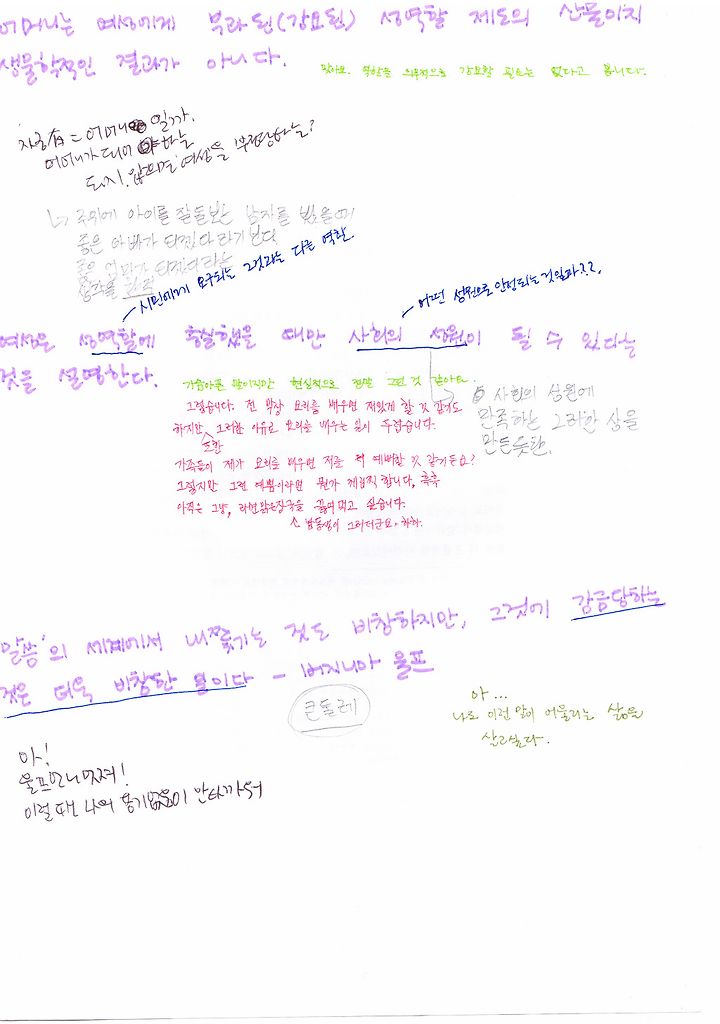 어머니는 여성에게 부과된(강요된) 성역할 제도의 산물이지
생물학적인 결과가 아니다.
맞아요. 역할을 의무적으로 강요할 필요는 없다고 봅니다.
자궁有 = 어머니 일까.
어머니가 되어야 하는
도시. 않의견 여성을 부정당하는?
↳ 주위에 아이를 잘돌보는 남자를 봤을때
좋은 아빠가 되겠다 라기보다
좋은 엄마가 되겠다라는
생각을
시민에게 요구되는 그것과는 다른 역할.
어떤 성원으로 인정되는 것일까??
여성은 성역할에 충실했을 때만 사회의 성원이 될 수 있다는
것을 설명한다.
가슴아픈 말이지만 현실적으로 정말 그런 것 같아요.
그렇습니다. 전 막상 요리를 배우면 재밌게 할 것 같기도
하지만 그러한 이유로 요리를 배우는 일이 두렵습니다.
또한
가족들이 제가 요리를 배우면 저를 더 예뻐할 것 같거든요?
그렇지만 그런 예쁨이라면 뭔가 께림직 합니다, 흑흑
아직은 그냥, 라면맑은장국을 끓여먹고 싶습니다.
^ 남동생이 그러더군요. 하하.
사회의 성원에
만족하는 그러한 상을
만든듯한.
'말씀'의 세계에서 내쫓기는 것도 비참하지만, 그것에 감금당하는
것은 더욱 비참한 일이다 - 버지니아 울프
큰둘레
아...
나도 이런 말이 어울리는 삶을
살고싶다.
아!
울프언니 멋져!
이럴 때 나의 용기없음이 안타까워